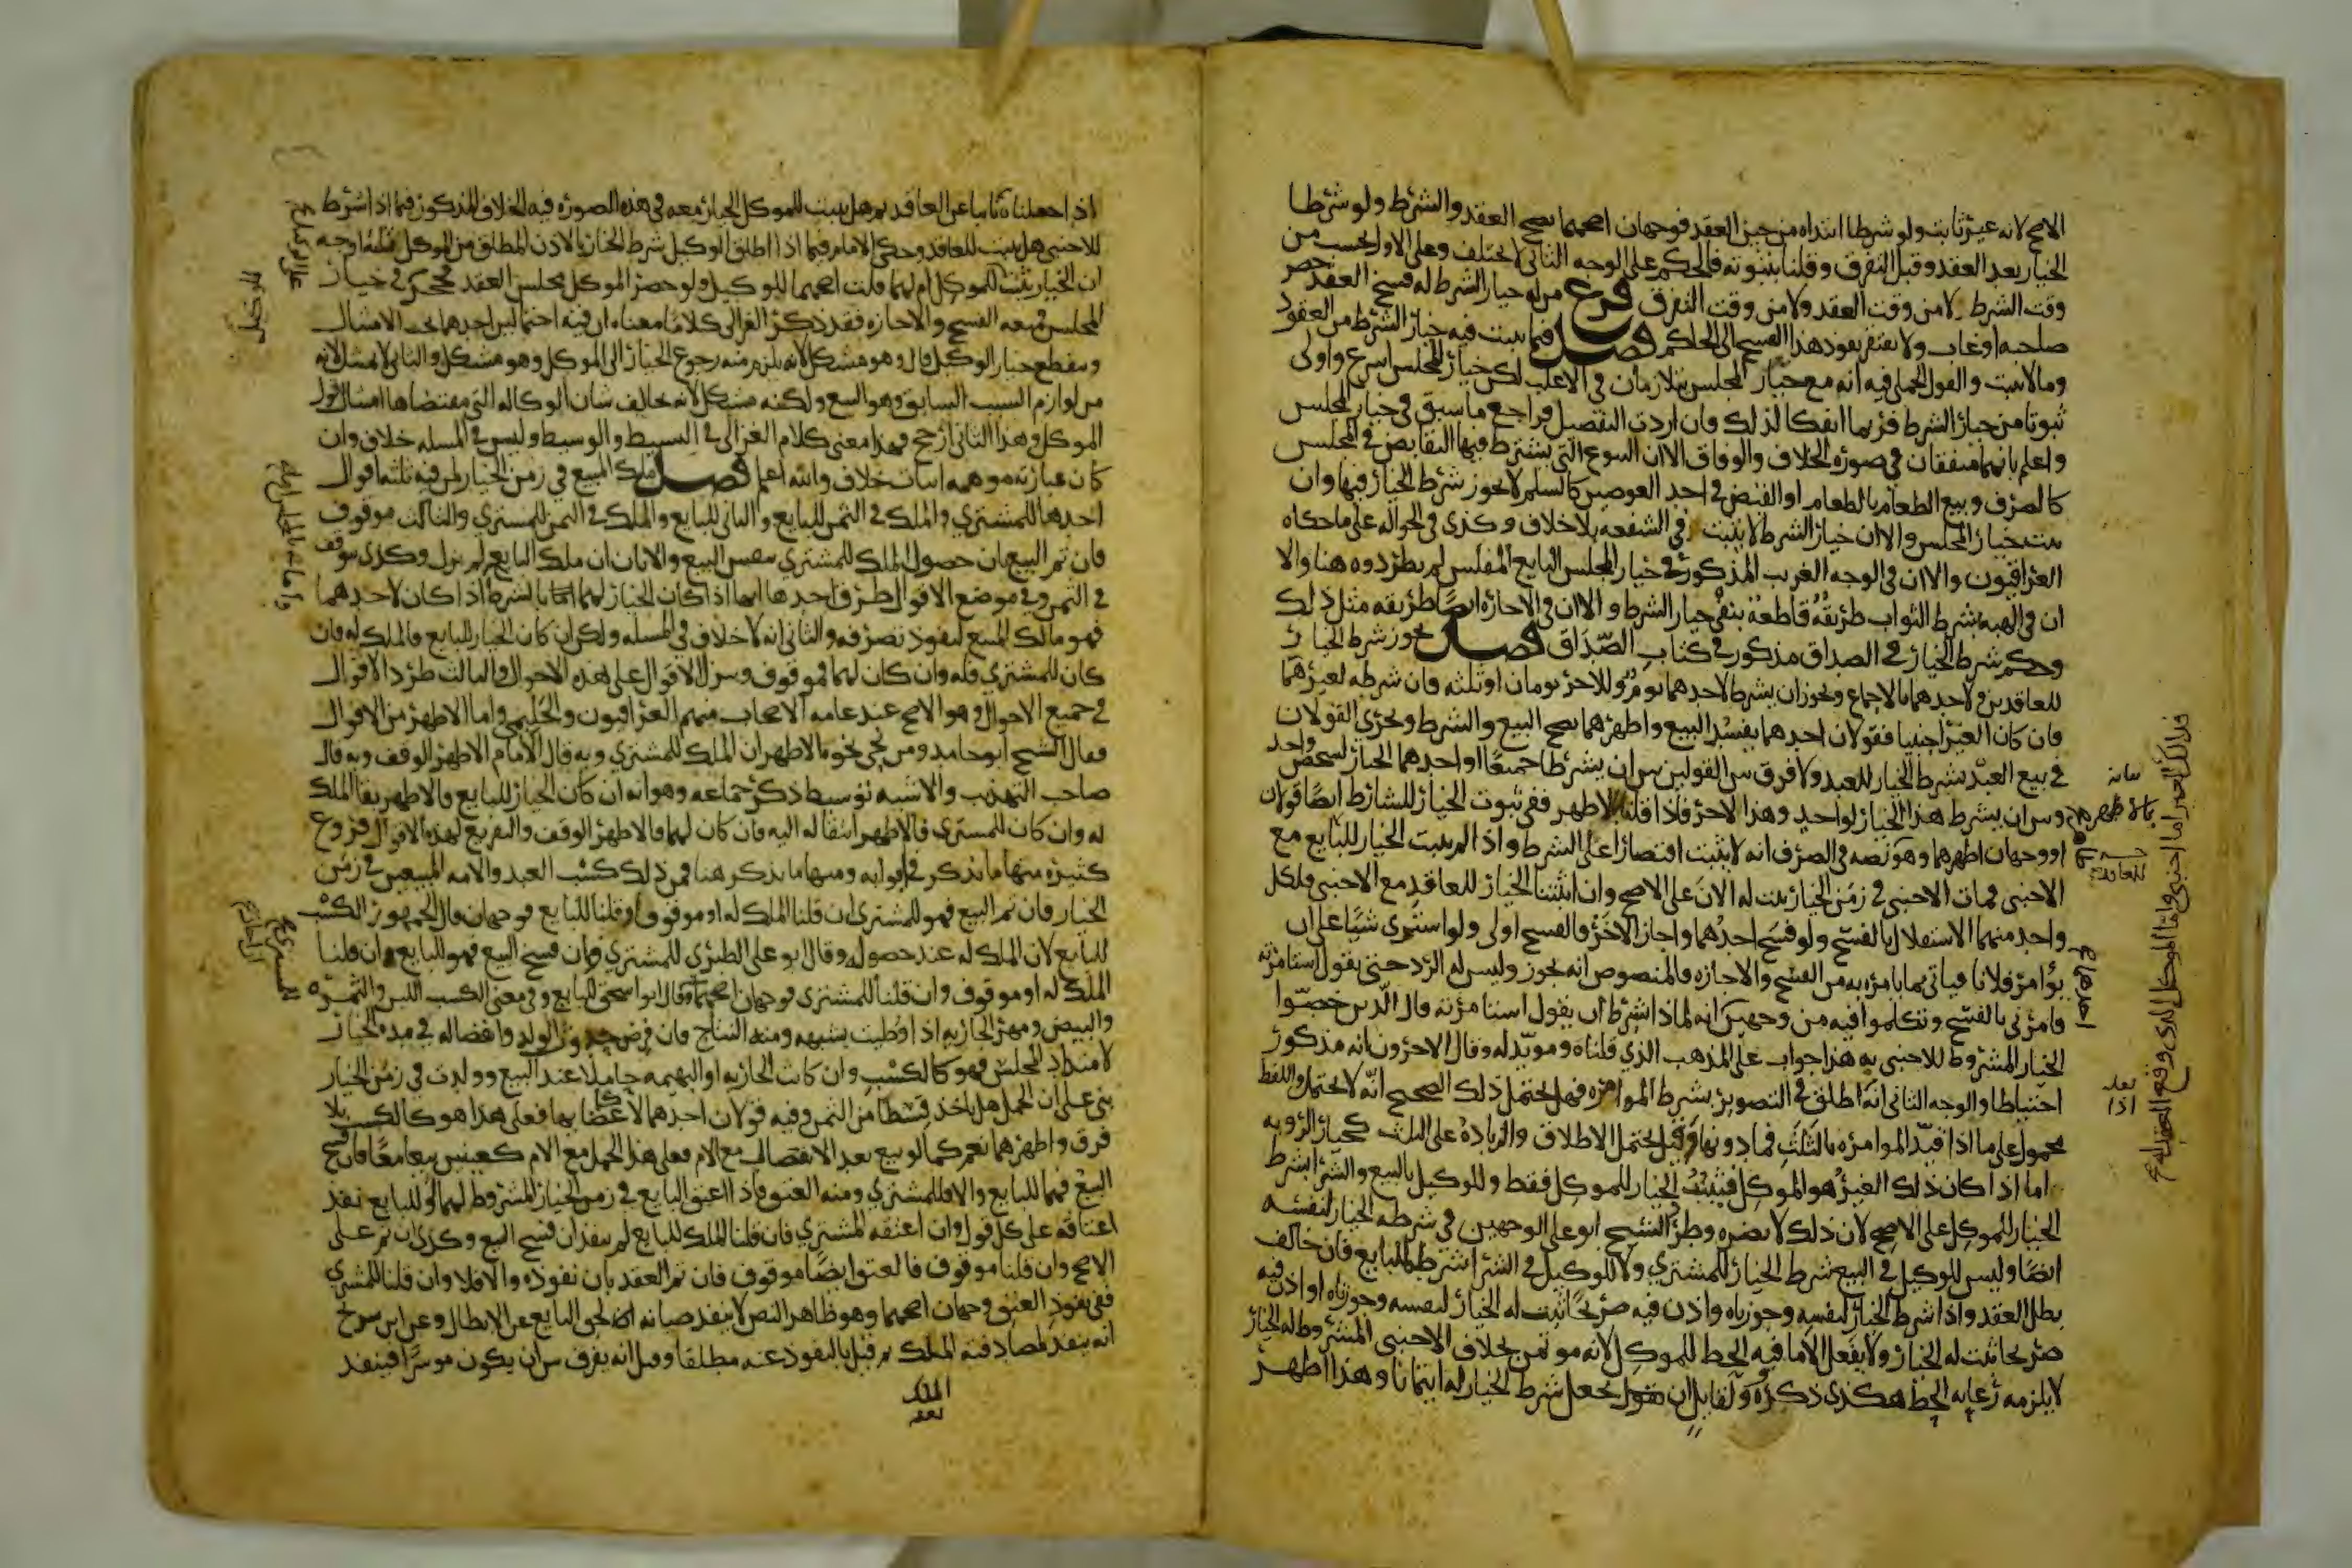 الاصح لانه غير ثابت ولو شرطا ابتداه من حين العقد فوجهان اصحهما يصح العقد والشرط ولو شرطا
الخيار بعد العقد وقبل التفرق وقلنا بثبوته فالحكم على الوجه الثاني لا يختلف وعلى الاول يحسب من
وقت الشرط لا من وقت العقد ولا من وقت التفرق فرع من له خيار الشرط له فسخ العقد حضر
صاحبه او غاب ولا يفتقر نفوذ هذا الفسخ الى الحاكم فصل فيما يثبت فيه خيار الشرط من العقود
وما لا يثبت والقول الجملي فيه انه مع خيار المجلس يتلازمان في الاغلب لكن خيار المجلس اسرع واولى
ثبوتا من خيار الشرط فربما انفكا لذلك فان اردت التفصيل فراجع ما سبق في خيار المجلس
واعلم بانهما متفقان في صورة الخلاف والوفاق الا ان البيوع التي يشترط فيها التقابض في المجلس
كالصرف وبيع الطعام بالطعام او القبض في احد العوضين كالسلم لا يجوز شرط الخيار فيها وان
يثبت خيار المجلس والا ان خيار الشرط لا يثبت في الشفعة بلا خلاف وكذى في الحوالة على ما حكاه
العراقيون والا ان في الوجه الغريب المذكور في خيار المجلس للبايع المفلس لم يطردوه هنا والا
ان في الهبة بشرط الثواب طريقة قاطعة بنفي خيار الشرط والا ان في الاجارة ايضا طريقه مثل ذلك
وحكم شرط الخيار في الصداق مذكور في كتاب الصداق فصل يجوز شرط الخيار
للعاقدين ولاحدهما بالاجماع ويجوز ان يشرط لاحدهما يوم وللاخر يومان او ثلثه فان شرطه لغيرهما
فان كان الغير اجنبيا فقولان احدهما يفسد البيع واظهرهما يصح البيع والشرط ويجري القولان
في بيع العبد بشرط الخيار للعبد ولا فرق بين القولين بين ان يشرطا جميعا او احدهما الخيار لشخص واحد
وبين ان يشرط هذا الخيار لواحد وهذا لاخر فاذا قلنا بالاظهر ففي ثبوت الخيار للشارط ايضا قولان
او وجهان اظهرهما وهو نصه في الصرف انه لا يثبت اقتصارا على الشرط واذا لم يثبت الخيار للبايع مع
الاجنبي فمات الاجنبي في زمن الخيار يثبت له الان على الاصح وان اثبتنا الخيار للعاقد مع الاجنبي فلكل
واحد منهما الاستقلال بالفسخ ولو فسخ احدهما واجاز الاخر فالفسخ اولى ولو اشترى شيئا على ان
يؤامر فلانا فياتي بما يامره به من الفسخ والاجازه فالمنصوص انه يجوز وليس له الرد حتى يقول استامرته
فامرني بالفسخ وتكلموا فيه من وجهين انه لماذا شرط ان يقول استامرته قال الذين خصوا
الخيار المشروط للاجنبي به هذا جواب على المذهب الذي قلناه ومويد له وقال الاخرون انه مذكور
احتياطا والوجه الثاني انه اطلق في التصوير بشرط الموامره فهل يحتمل ذلك الصحيح انه لا يحتمل واللفظ
محمول على ما اذا قيد الموامره بالثلث فما دونها وقيل يحتمل الاطلاق والزيادة على الثلث كخيار الرؤيه
اما اذا كان ذلك الغير هو الموكل فيثبت الخيار للموكل فقط وللوكيل بالبيع والشرا شرط
الخيار للموكل على الاصح لان ذلك لا يضره وطرد الشيخ ابو علي الوجهين في شرطه الخيار لنفسه
ايضا وليس للوكيل في البيع شرط الخيار للمشتري ولا للوكيل في الشرا شرط للبايع فان خالف
بطل العقد واذا شرط الخيار لنفسه وجوزناه او اذن فيه صريحا ثبت له الخيار
صريحا ثبت له الخيار ولا يفعل الا ما فيه الحظ للموكل لانه موتمن بخلاف الاجنبي المشروط له الخيار
لا يلزمه رعايه الحظ هكذى ذكروه ولقايل ان يقول يجعل شرط الخيار له ايتمانا وهذا اظهر
اذا جعلناه نايبا عن العاقد ثم هل يثبت للموكل الخيار معه في هذه الصوره فيه الخلاف المذكور فيما اذا شرط
للاجنبي هل يثبت للعاقد وحكى الامام فيما اذا اطلق الوكيل شرط الخيار بالاذن المطلق من الموكل ثلثه اوجه
ان الخيار يثبت للموكل ام لهما قلت اصحهما للوكيل ولو حضر الموكل مجلس العقد فحجر في خيار
المجلس فمنعه الفسخ والاجازه فقد ذكر الغزالي كلاما معناه ان فيه احتمالين احدهما يجب الامتثال
وينقطع خيار الوكيل قال وهو مشكل لانه يلزم منه رجوع الخيار الى الموكل وهو مشكل والثاني لا يمتثل لانه
من لوازم السبب السابق وهو البيع ولكنه مشكل لانه يخالف شان الوكاله التي مقتضاها امتثال قول
الموكل وهذا الثاني ارجح وهذا معنى كلام الغزالي في البسيط والوسيط وليس في المسله خلاف وان
كان عبارته موهمه اثبات خلاف والله اعلم فصل ملك المبيع في زمن الخيار لمن فيه ثلثه اقوال
احدها للمشتري والملك في الثمن للبايع والثاني للبايع والملك في الثمن للمشتري والثالث موقوف
فان تم البيع بان حصول الملك للمشتري بنفس البيع والا بان ان ملك البايع لم يزل وكذى يتوقف
في الثمن وفي موضع الاقوال طرق احدها انها اذا كان الخيار لهما اما بالشرط اذا كان لاحدهما
فهو مالك المبيع لنفوذ تصرفه والثاني انه لا خلاف في المسله ولكن ان كان الخيار للبايع فالملك له فان
كان للمشتري فله وان كان لهما فموقوف وتنزل الاقوال على هذه الاحوال والثالث طرد الاقوال
في جميع الاحوال وهو الاصح عند عامه الاصحاب منهم العراقيون والحليمي واما الاظهر من الاقوال
فقال الشيخ ابو حامد ومن نحى نحوه الاظهر ان الملك للمشتري وبه قال الامام الاظهر الوقف وبه قال
صاحب التهذيب والاشبه توسيط ذكره جماعه وهو انه ان كان الخيار للبايع فالاظهر بقا الملك
له وان كان للمشتري فالاظهر انتقاله اليه فان كان لهما فالاظهر الوقف والتفريع لهذه الاقوال فروع
كثيره منها ما يذكر في ابوابه ومنها ما يذكر هنا فمن ذلك كسب العبد والامه المبيعين في زمن
الخيار فان تم البيع فهو للمشتري ان قلنا الملك له او موقوف وان قلنا للبايع فوجهان قال الجمهور الكسب
للبايع لان الملك له عند حصوله وقال ابو علي الطبري للمشتري وان فسخ البيع فهو للبايع ان قلنا
الملك له او موقوف وان قلنا للمشتري فوجهان اصحهما وقال ابو اسحق للبايع وفي معنى الكسب اللبن والثمره
والبيض ومهر الجاريه اذا وطيت بشبهه ومنه النتاج فان فرض حدوث الولد وانفصاله في مده الخيار
لامتداد المجلس فهو كالكسب وان كانت الجاريه او البهيمه حاملا عند البيع وولدت في زمن الخيار
بني على ان الحمل هل ياخذ قسطا من الثمن وفيه قولان احدهما لا كاعضايها فعلى هذا هو كالكسب بلا
فرق واظهرهما نعم كما لو بيع بعد الانفصال مع الام فعلى هذا الحمل مع الام كعينين بيعا معا فان فسخ
البيع فهما للبايع والا فللمشتري ومنه العتق فاذا اعتق البايع في زمن الخيار المشروط لهما او للبايع نفذ
اعتاقه على كل قول وان اعتقه المشتري فان قلنا الملك للبايع لم ينفذ ان فسخ البيع وكذى ان تم على
الاصح وان قلنا موقوف فالعتق ايضا موقوف فان تم العقد بان نفوذه والا فلا وان قلنا للمشتري
ففي نفوذ العتق وجهان اصحهما وهو ظاهر النص لا ينفذ صيانه لحق البايع عن الابطال وعن ابن سريج
انه ينفذ لمصادفته الملك ثم قيل بالنفوذ عنه مطلقا وقيل انه يفرق بين ان يكون موسرا فينفذ